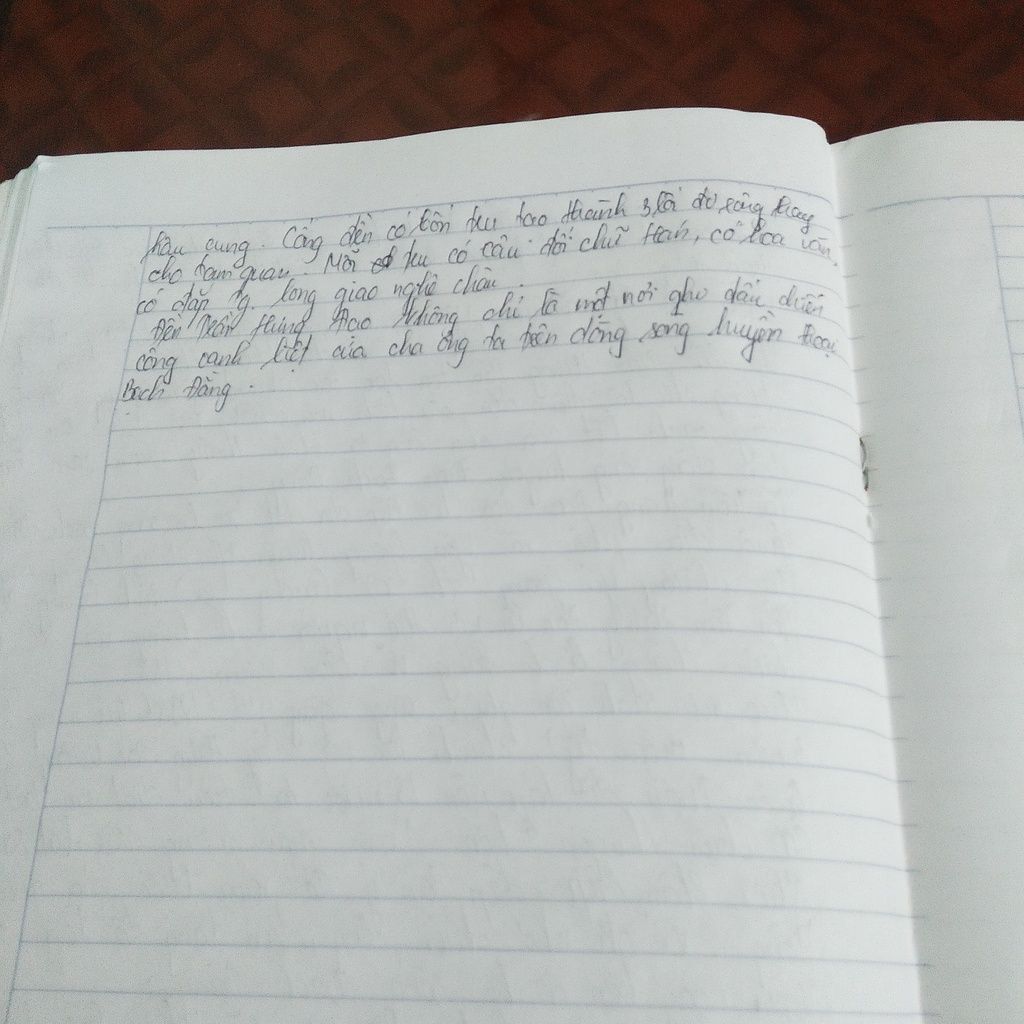 hậu cung. Cổng đền có bốn trụ tạo thành 3 lối đi rộng thay
cho tam quan. Mỗi trụ có câu đối chữ Hán, có hoa văn,
có đắp long giao nghê chầu.
Đền Trần Hưng Đạo không chỉ là một nơi ghi dấu chiến
công oanh liệt của cha ông ta trên dòng sông huyền thoại
Bạch Đằng.